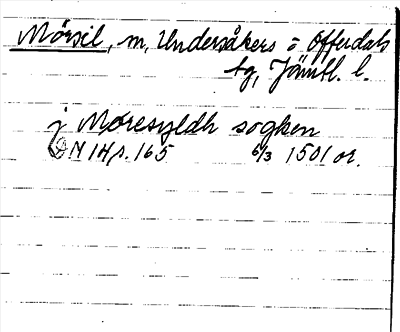 Mörsil, sn, Undersåkers o Offerdals
tg, Jämtl. l.
j Moresyldh sogken
DN 14 s. 165 6/3 1501 or.